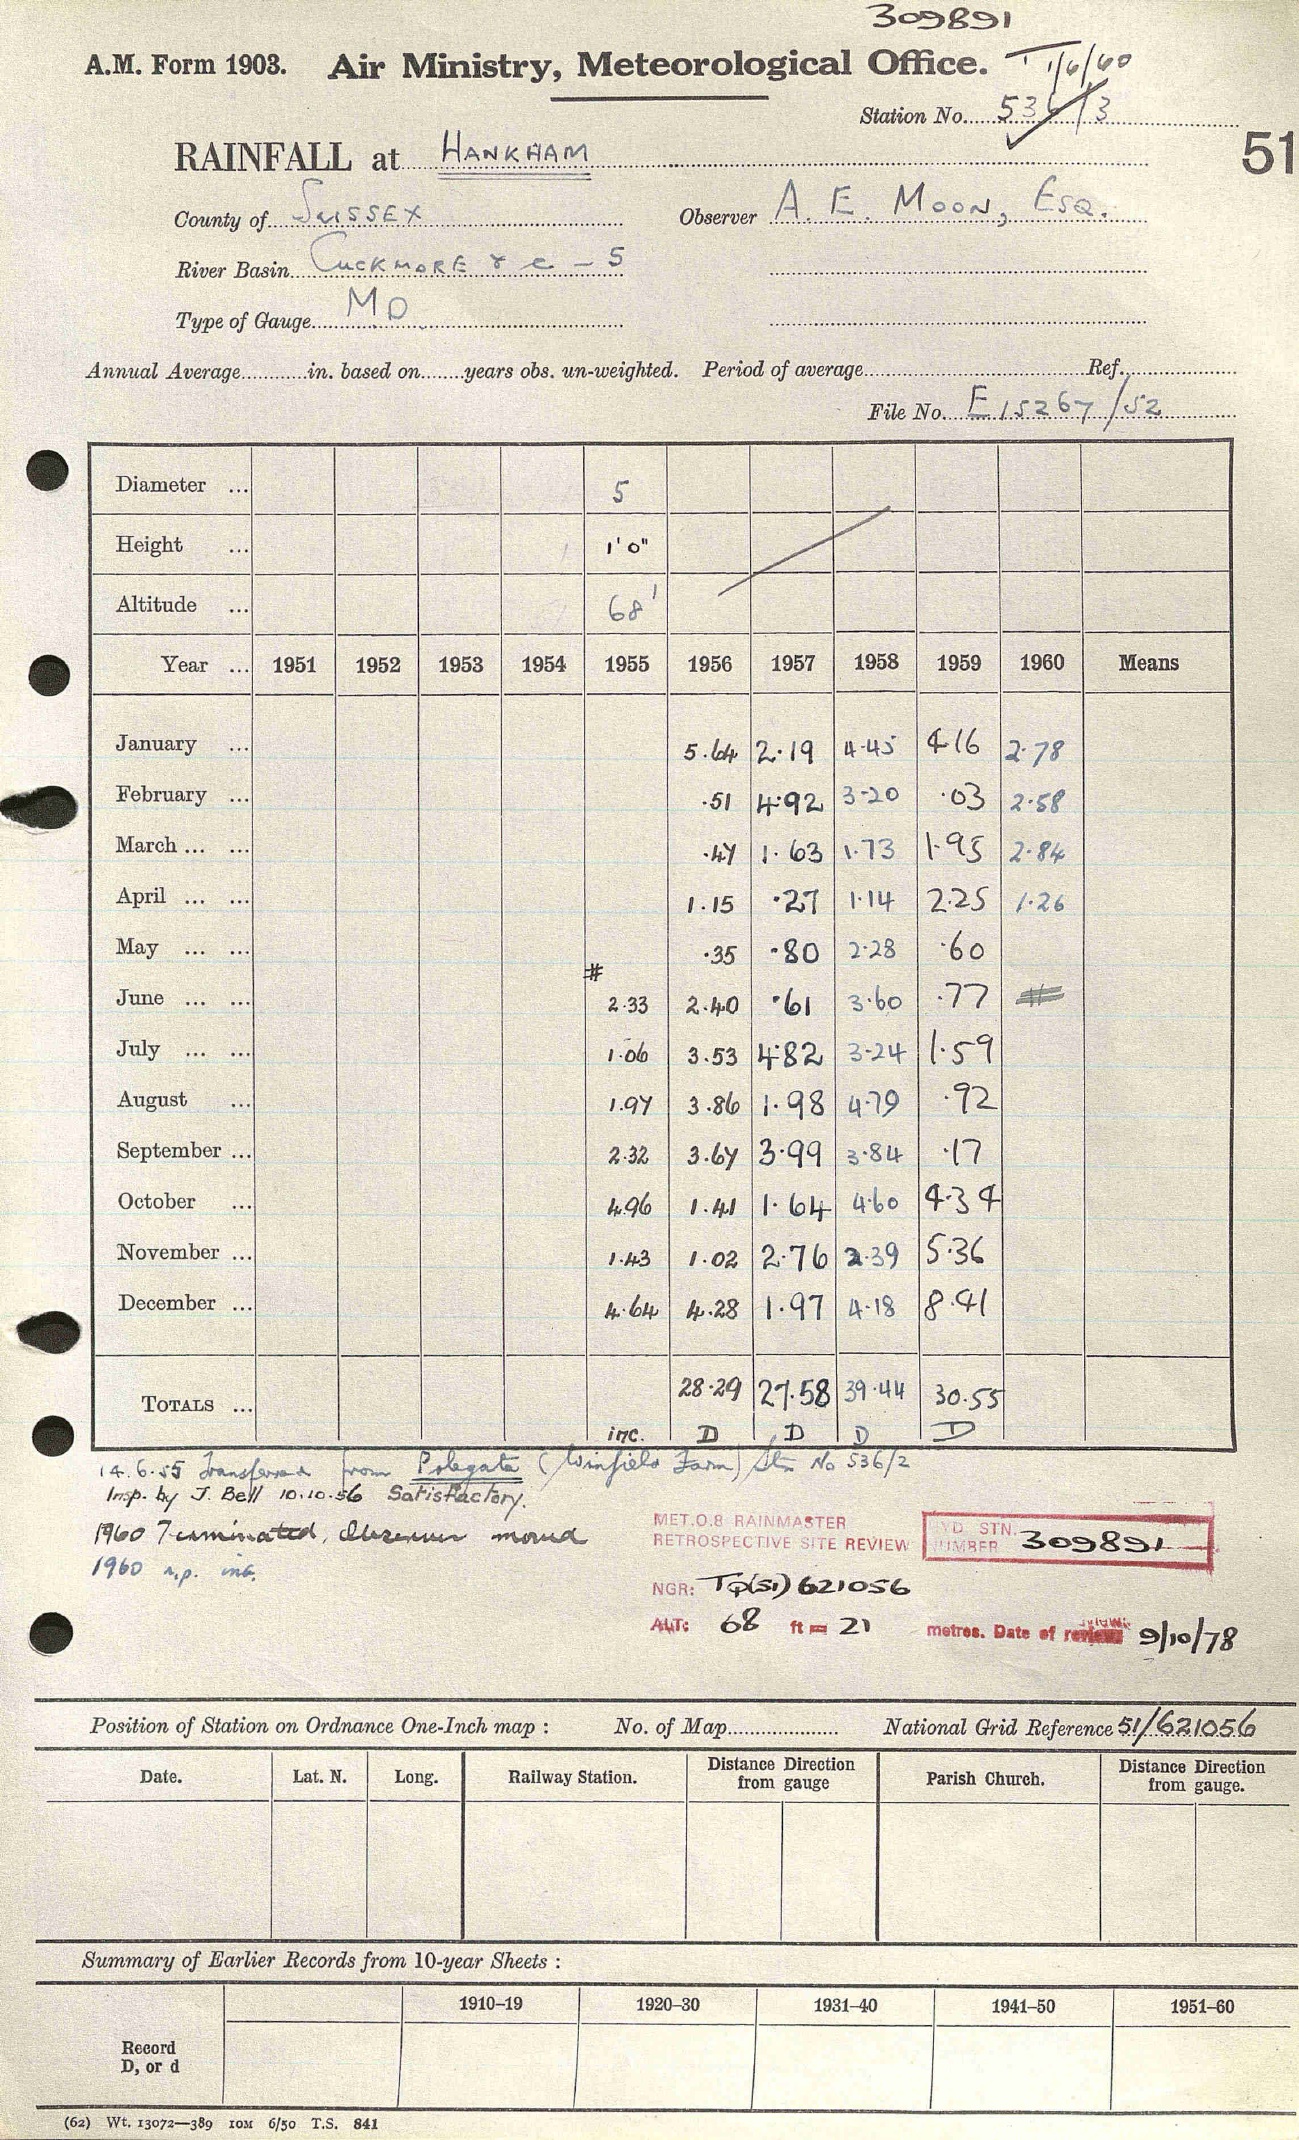 309891
A.M. Form 1903. Air Ministry, Meteorological Office. T 1/6/60
Station No. 536/3
51
RAINFALL at HANKHAM
County of SUSSEX Observer A. E. MOON, ESQ.
River Basin CUCKMORE & c - 5
Type of Gauge MO
Annual Average.........in. based on.......years obs. un-weighted. Period of average..........Ref.
File No. E 15267/52
Diameter ... 5
Height ... 1'0"
Altitude ... 68'
Year ... 1951 1952 1953 1954 1955 1956 1957 1958 1959 1960 Means
January ... 5.64 2.19 4.45 4.16 2.78
February ... .51 4.92 3.20 .03 2.58
March ... ... .47 1.63 1.73 1.95 2.84
April ... ... 1.15 .27 1.14 2.25 1.26
May ... ... .35 .80 2.28 .60
June ... ... # 2.33 2.40 .61 3.60 .77 #
July ... ... 1.06 3.53 4.82 3.24 1.59
August ... 1.97 3.86 1.98 4.79 .92
September ... 2.32 3.67 3.99 3.84 .17
October ... 4.96 1.41 1.64 4.60 4.34
November ... 1.43 1.02 2.76 2.39 5.36
December ... 4.64 4.28 1.97 4.18 8.41
TOTALS ... 28.29 27.58 39.44 30.55
inc. D D D D
14.6.55 Transferred from Polegate (Winfield Farm) Stn No 536/2
Insp. by J. Bell 10.10.56 Satisfactory.
1960 Terminated, Observer moved
1960 n.p. inc.
MET.O.8 RAINMASTER
RETROSPECTIVE SITE REVIEW
STN. NUMBER 309891
NGR: TQ(51) 621056
ALT: 68 ft = 21 metres. Date of review 9/10/78
Position of Station on Ordnance One-Inch map : No. of Map.......... National Grid Reference 51/621056
Date. Lat. N. Long. Railway Station. Distance Direction from gauge Parish Church. Distance Direction from gauge.
Summary of Earlier Records from 10-year Sheets :
1910–19 1920–30 1931–40 1941–50 1951–60
Record
D, or d
(62) Wt. 13072—389 10M 6/50 T.S. 841